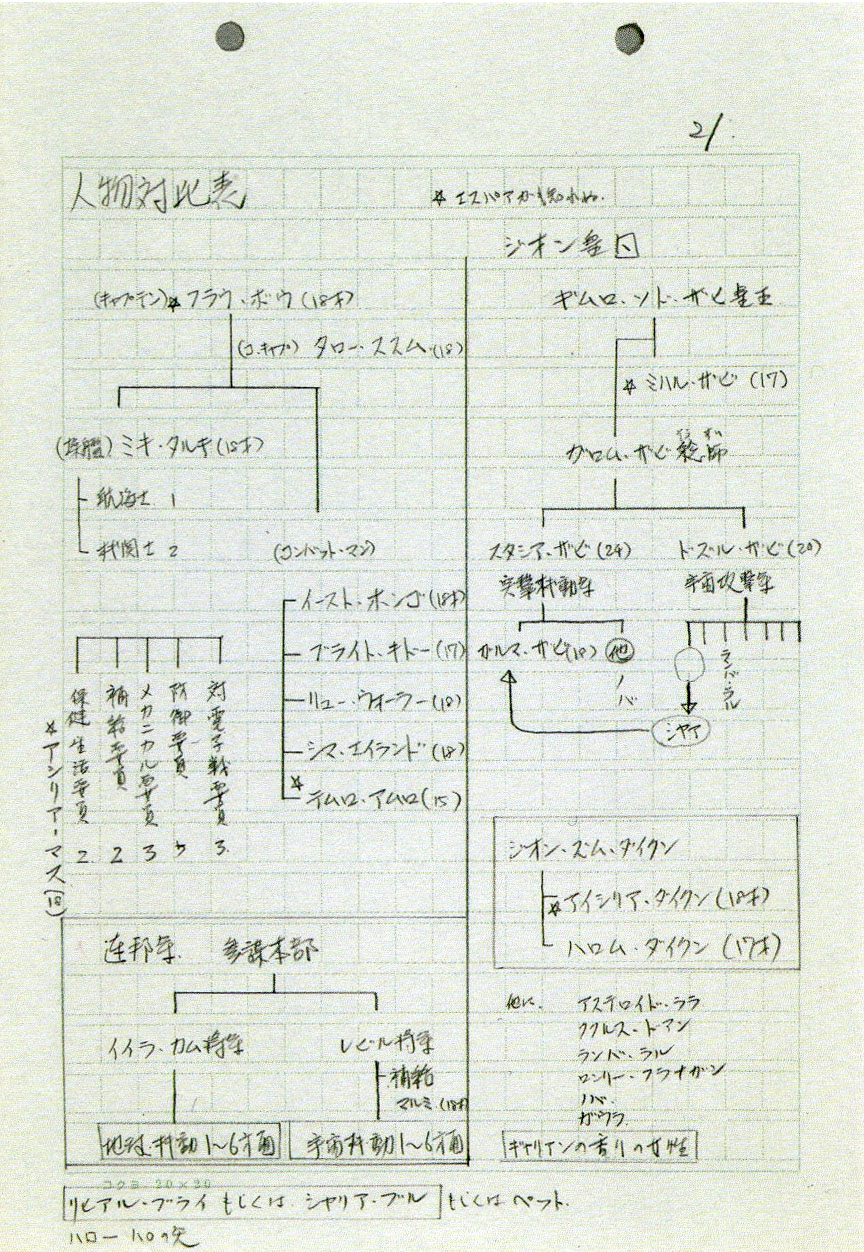 21.
人物対比表
☆エスパアかも知れぬ.
(キャプテン)☆フラウ・ボウ(18才)
(コ.キャプ) タロー・ススム(18)
(操艦) ミキ・タルキ(18才)
航海士 1
機関士 2
(コンバット・マン)
イースト・ホンゴ(18才)
ブライト・キドー(17)
リュー・ウォーラー(18)
シマ・エイランド(18)
☆テムロ・アムロ(15)
対電子戦要員 3.
防御要員 5
メカニカル要員 3
補給要員 2
保健生活要員 2
☆アンリア・マス(18)
連邦軍. 参謀本部
イイラ・カム将軍
レビル将軍
補給
マルミ.(18才
地球.機動1〜6方面
宇宙機動1〜6方面
ジオン皇国
ギムロ・ソド・ザビ皇王
☆ミハル・ザビ(17)
ガロム・ザビ総師
スタシア・ザビ(24)
突撃機動軍
ドズル・ザビ(20)
宇宙攻撃軍
ガルマ・ザビ(18) 他
ノバ
ランバ・ラル
シャア
ジオン・ズム・ダイクン
☆アイシリア・ダイクン(18才)
ハロム・ダイクン(17才)
他に. アステロイド・ララ
ククルス・ドアン
ランバ・ラル
ロンリー・フラナガン
ノバ.
ガウラ.
ギャリアンの香りの女性
コクヨ 20×20
リヒアル・ブライ もしくは シャリア・ブル もしくは ペット.
ハロー ハロの兄